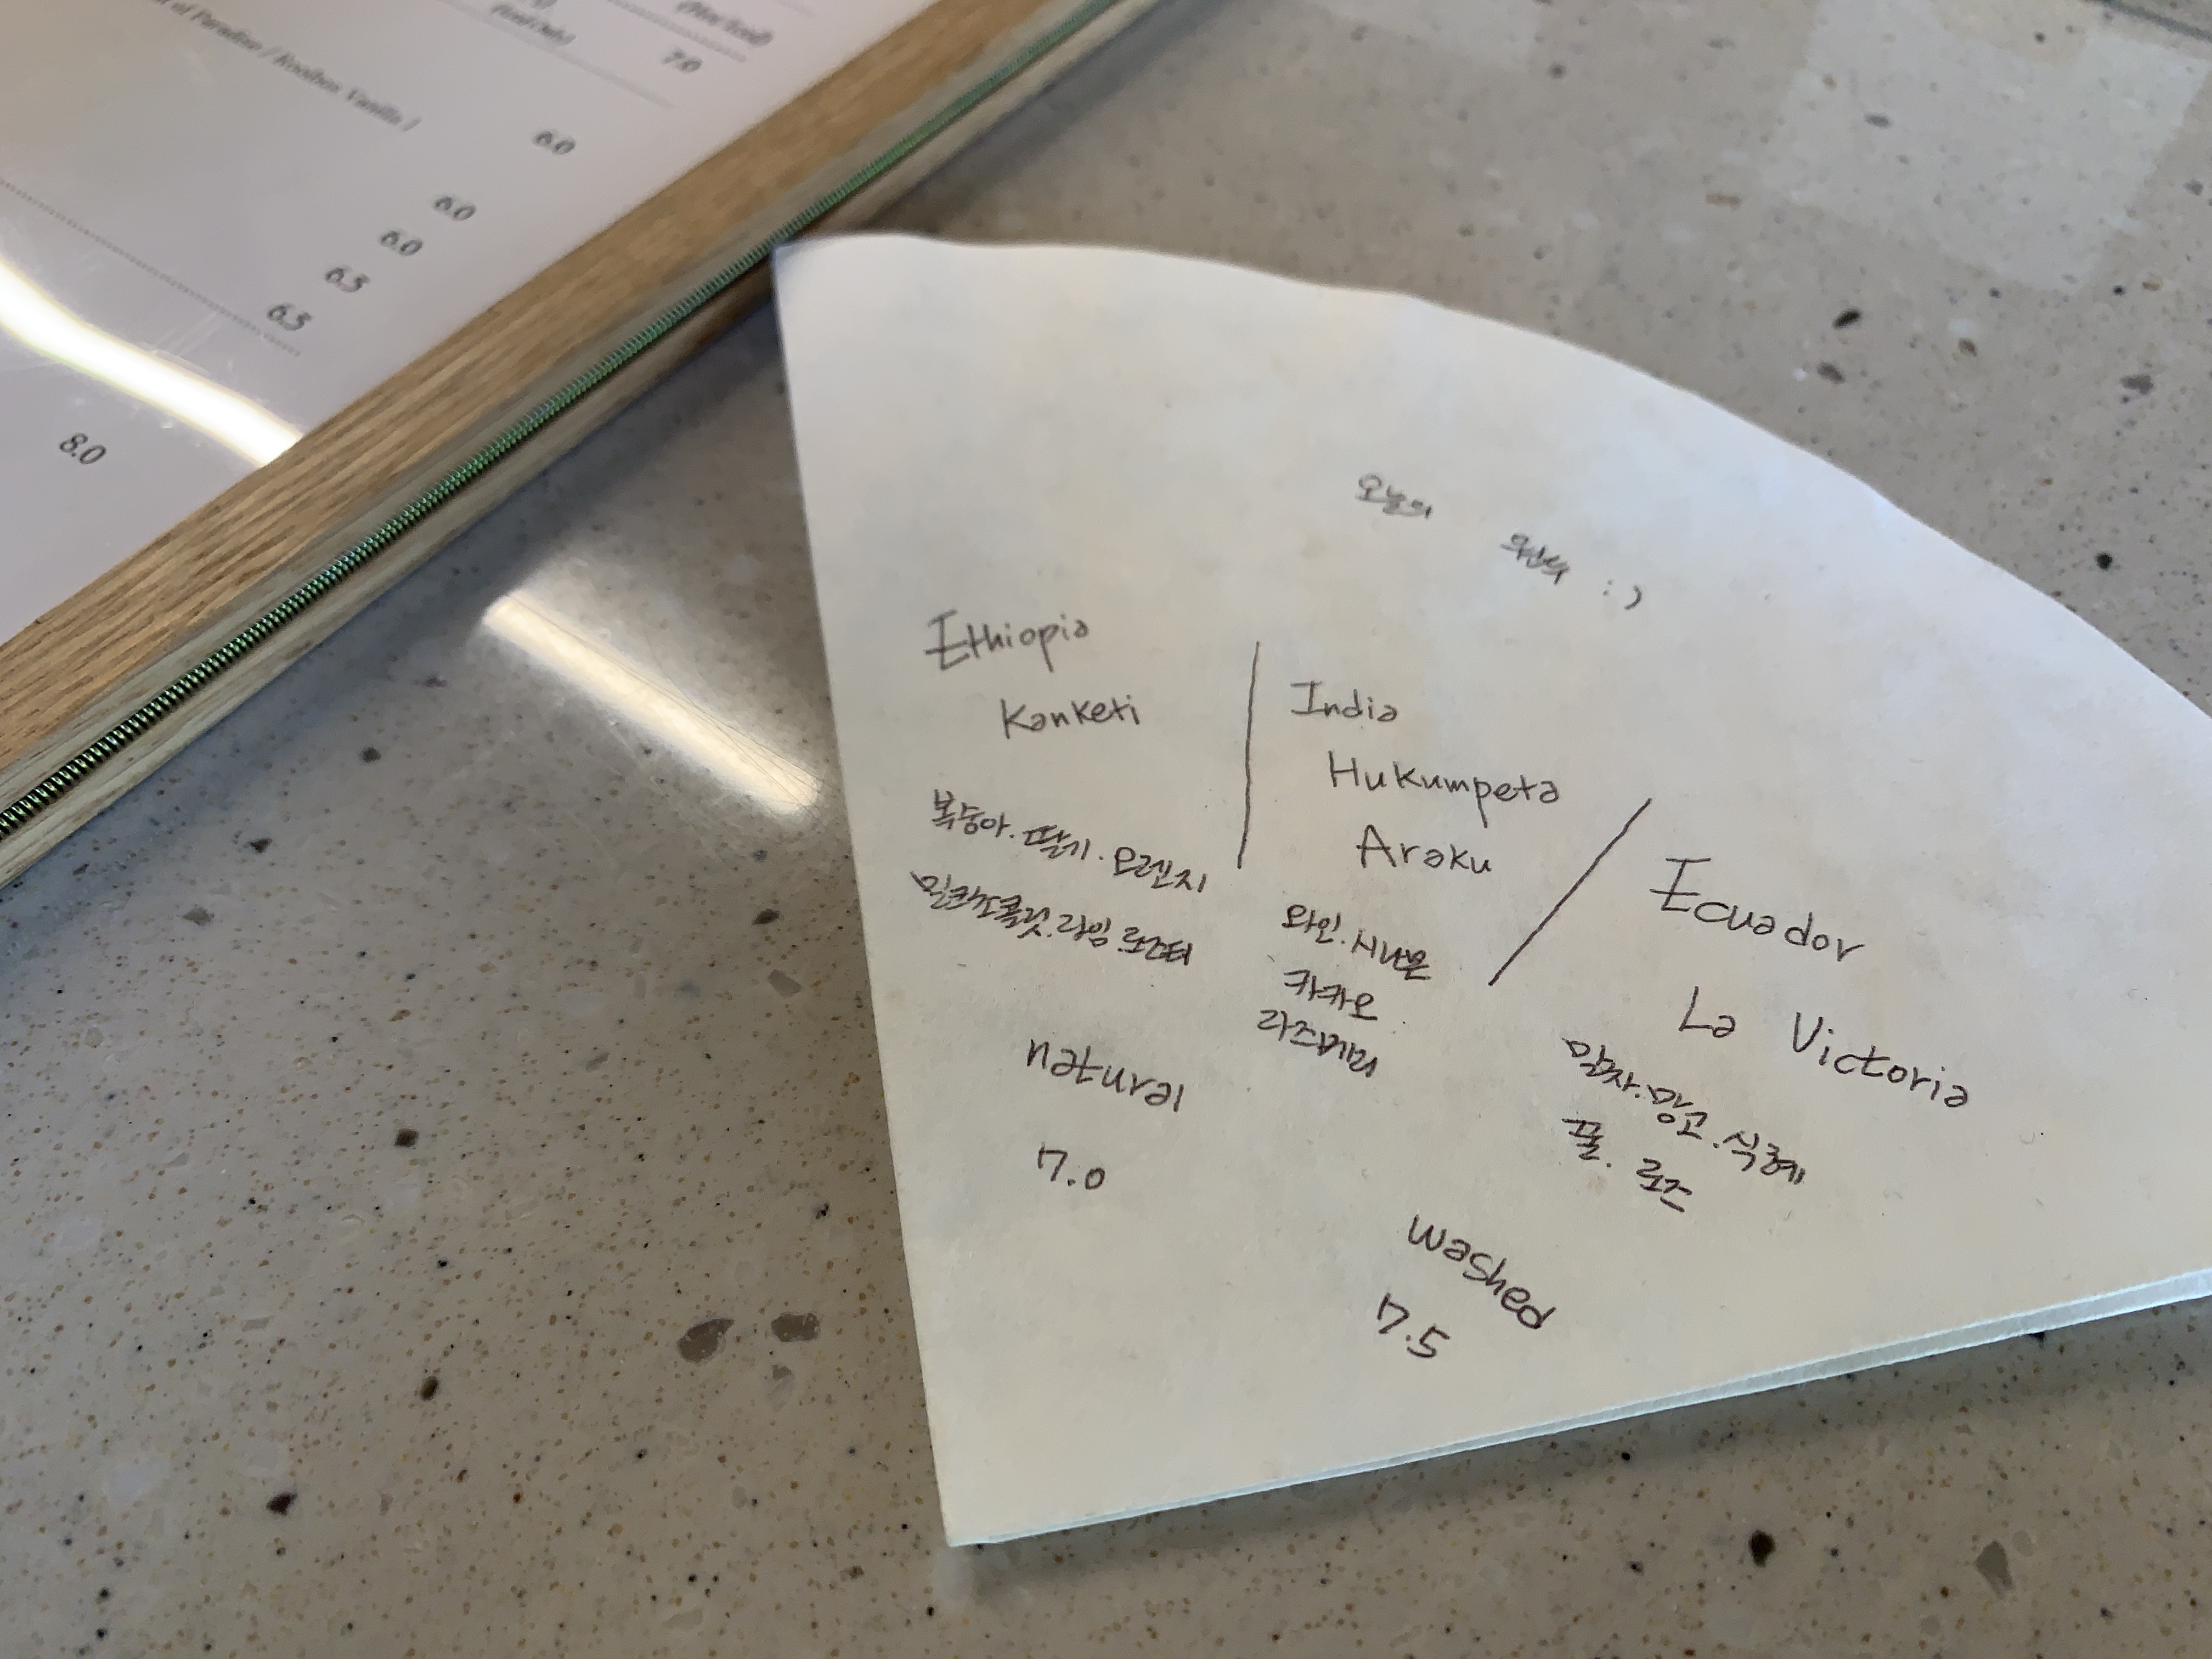 of Paradise / Rooibos Vanilla /
7.0
6.0
6.0
6.0
6.5
6.5
8.0
오늘의 :)
Ethiopia
Kanketi
복숭아. 딸기. 오렌지
밀크초콜릿. 라임
natural
7.0
India
Hukumpeta
Araku
와인. 시나몬
카카오
라즈베리
Ecuador
La Victoria
감자. 망고. 식혜
꿀. 로즈
washed
7.5